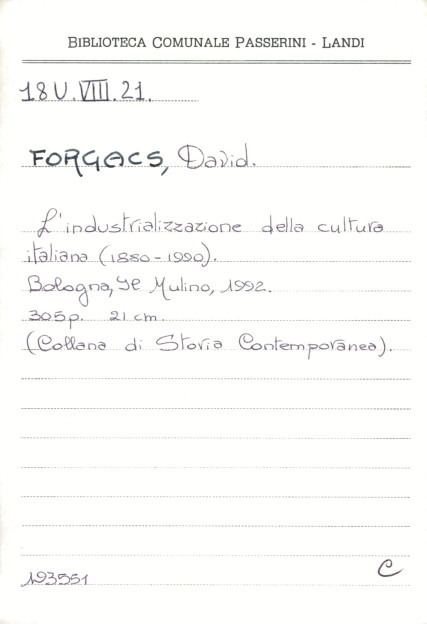 BIBLIOTECA COMUNALE PASSERINI - LANDI
18 U. VIII. 21.
FORGACS, David.
L'industrializzazione della cultura
italiana (1880-1990).
Bologna, Il Mulino, 1992.
305 p. 21 cm.
(Collana di Storia Contemporanea).
193551
C